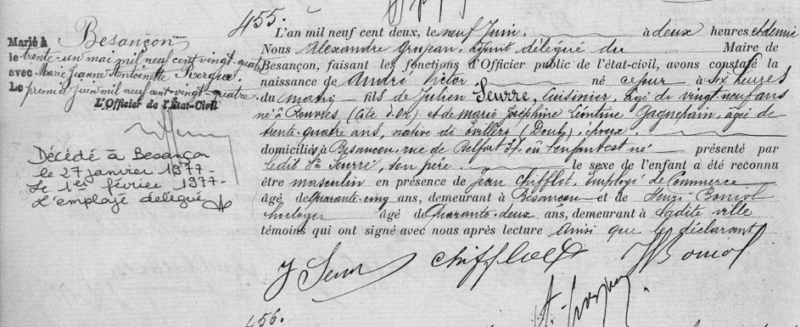 455.
L'an mil neuf cent deux, le neuf Juin à deux heures et demie
Nous Alexandre Grosjean, adjoint délégué du Maire de
Besançon, faisant les fonctions d'Officier public de l'état-civil, avons constaté la
naissance de André Victor né ce jour à six heures
du matin fils de Julien Seurre, cuisinier, âgé de vingt neuf ans
né à Rouvres (Côte d'Or) et de Marie Joséphine Léontine Gagnepain, âgée de
trente quatre ans, native de (Doubs) épouse
domiciliés à Besançon, rue de Belfort 37, où l'enfant est né présenté par
ledit Sr Seurre, son père le sexe de l'enfant a été reconnu
être masculin en présence de Jean Chifflot, employé de Commerce
âgé de Quarante cinq ans, demeurant à Besançon et de Henri
horloger âgé de Quarante deux ans, demeurant à ladite ville
témoins qui ont signé avec nous après lecture ainsi que le déclarant
J Seurre Chifflot
Marié à Besançon
le trente un mai mil neuf cent vingt quatre
avec Marie Jeanne Antoinette
Le premier Juin mil neuf cent vingt quatre
L'Officier de l'État-Civil
Décédé à Besançon
le 27 janvier 1977-
Le 1er février 1977-
L'employé délégué
456.